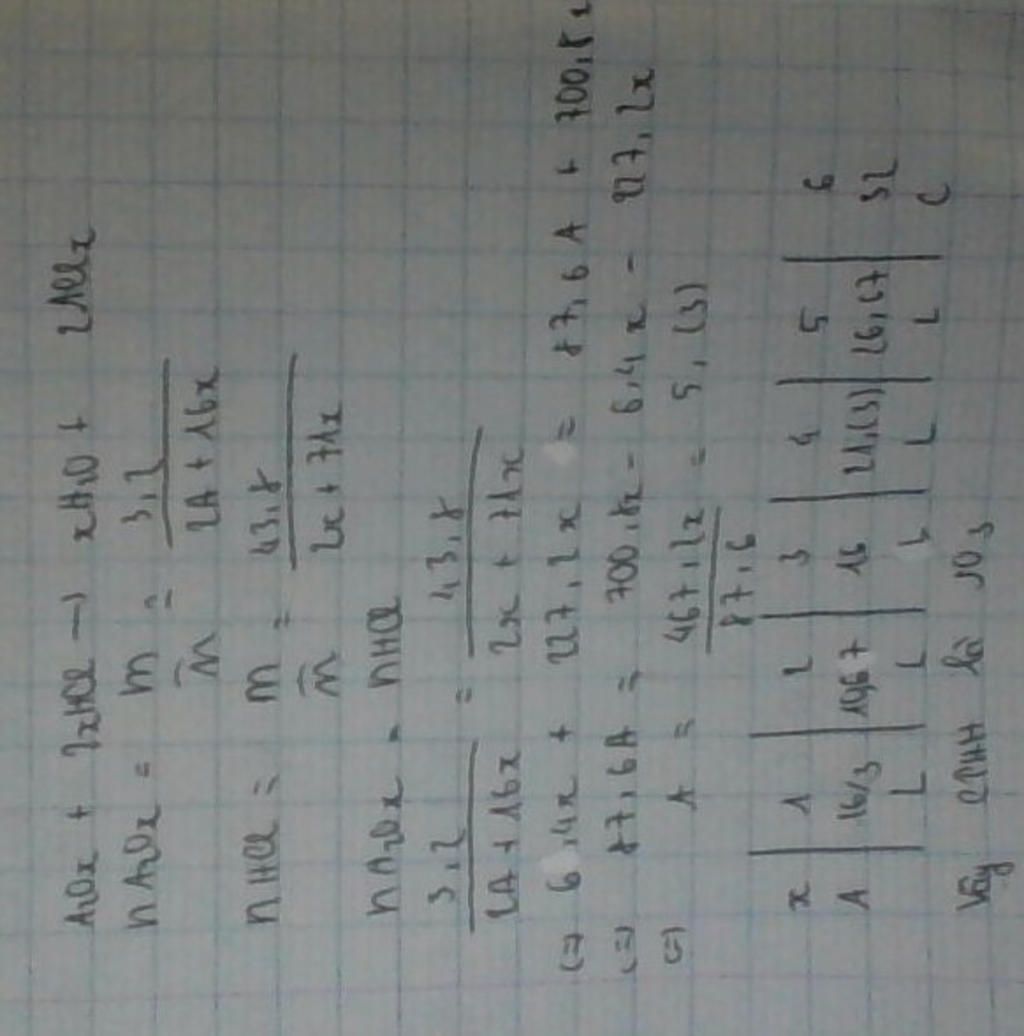 A2Ox + 2xHCl → xH2O + 2AClx
nA2Ox = m/M = 3,2/(2A + 16x)
nHCl = m/M = 43,8/(2x + 71x)
nA2Ox = nHCl
3,2/(2A + 16x) = 43,8/(2x + 71x)
(=) 6,4x + 227,2x = 87,6A + 700,8x
(=) 87,6A = 700,8x - 6,4x - 227,2x
(=) A = 467,2x/87,6 = 5,(3)
x | 1 | 2 | 3 | 4 | 5 | 6
A | 16/3 | 10,67 | 16 | 21,(3) | 26,67 | 32
L | L | L | L | L | C
Vậy CTHH là SO3